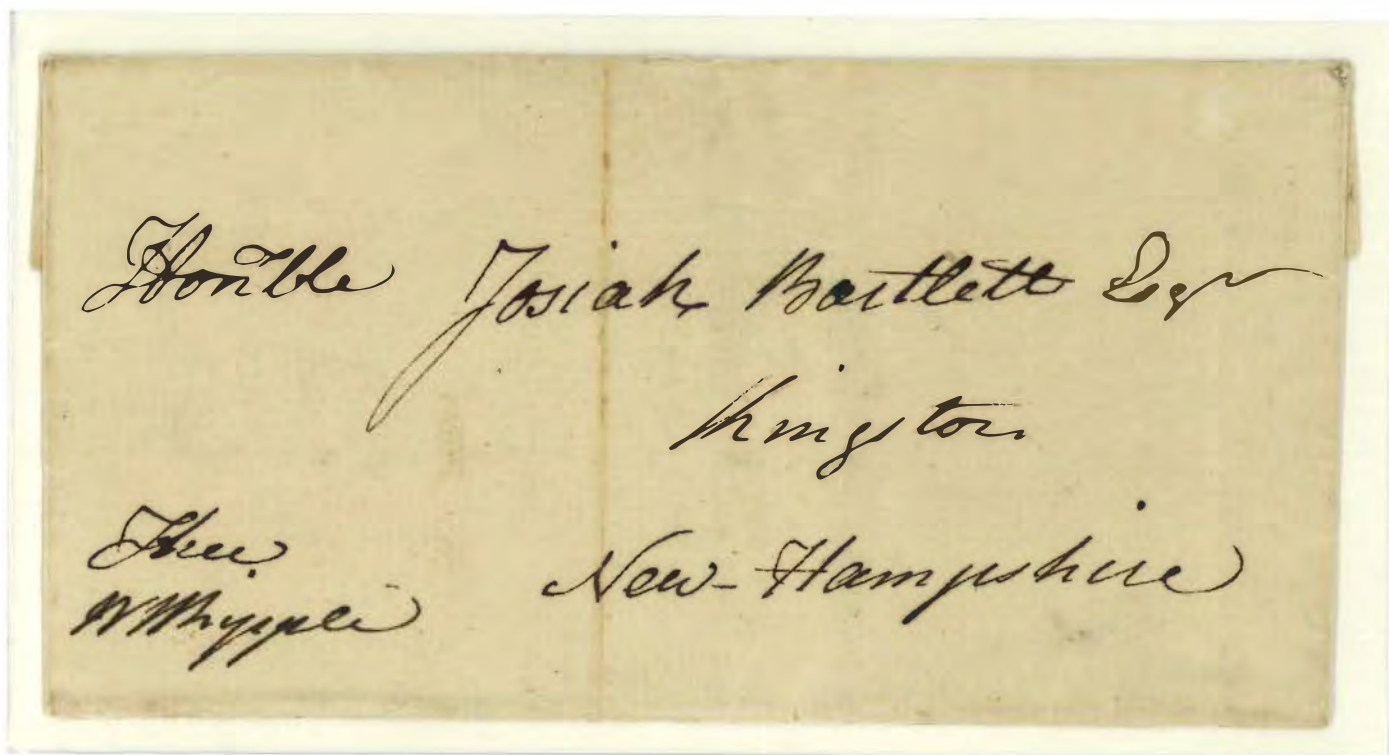 Honble Josiah Bartlett Esqr
Kingston
New-Hampshire
Free
W Whipple